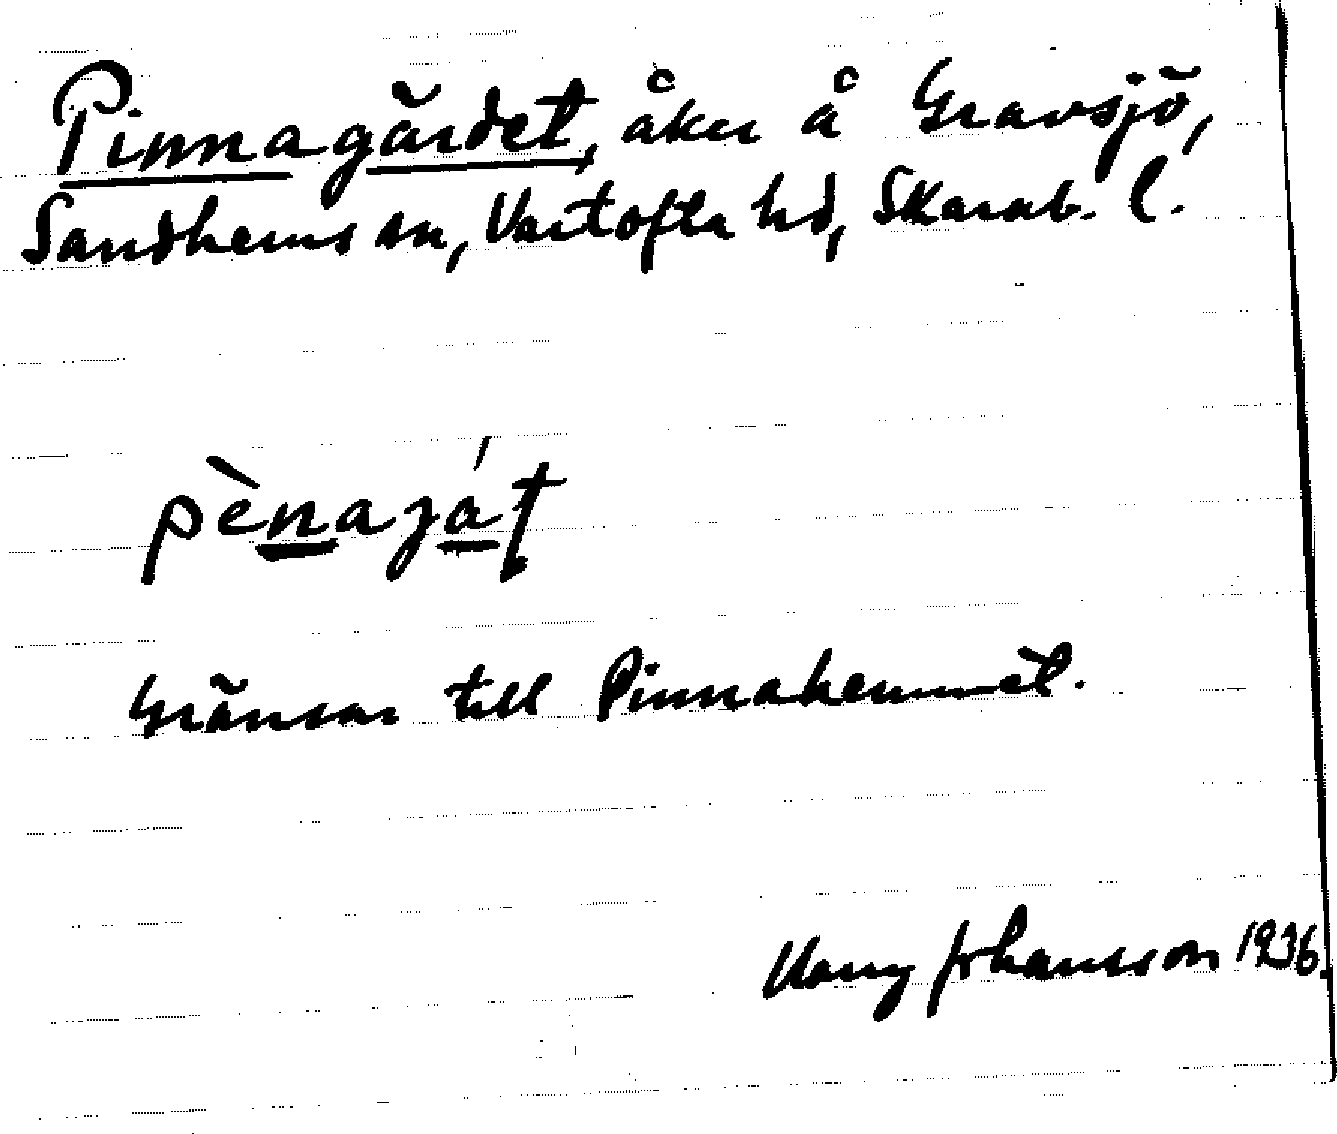 Pinnagärdet, åker å Gravsjö,
Sandhems sn, Vartofta hd, Skarab. l.
pènaját
Gränsar till Pinnahemmet.
Harry Johansson 1936.